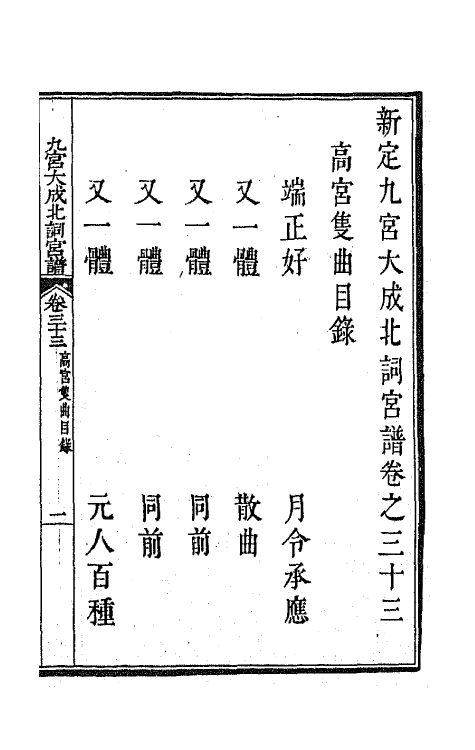 新定九宮大成北詞宮譜卷之三十三
高宮隻曲目錄
端正好　月令承應
又一體　散曲
又一體　同前
又一體　同前
又一體　元人百種
九宮大成北詞宮譜　卷三十三　高宮隻曲目錄　一